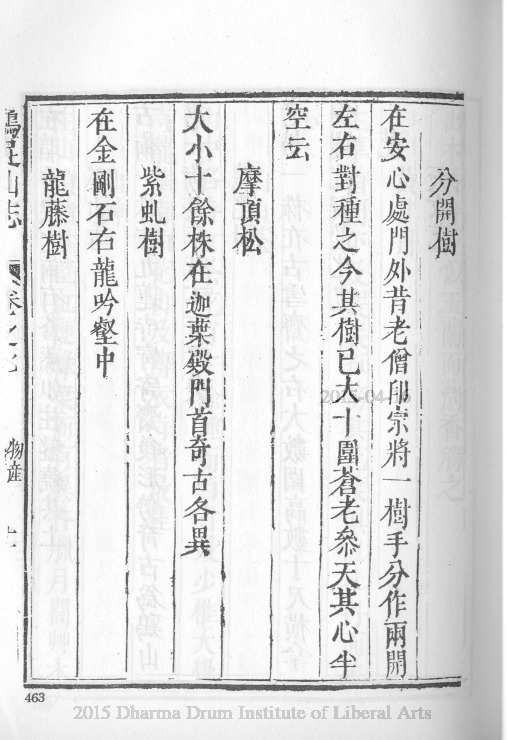 分開樹
在安心處門外昔老僧印宗將一樹手分作兩開
左右對種之今其樹已大十圍蒼老叅天其心半
空云
摩頂松
大小十餘株在迦葉殿門首奇古各異
紫虬樹
在金剛石右龍吟壑中
龍藤樹
雞足山志 卷之九 物產 十一
463
2015 Dharma Drum Institute of Liberal Arts